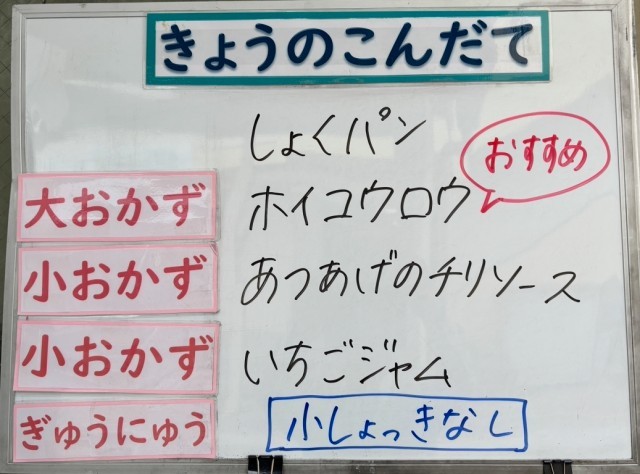 きょうのこんだて
しょくパン
おすすめ
大おかず ホイコウロウ
小おかず あつあげのチリソース
小おかず いちごジャム
ぎゅうにゅう 小しょっきなし